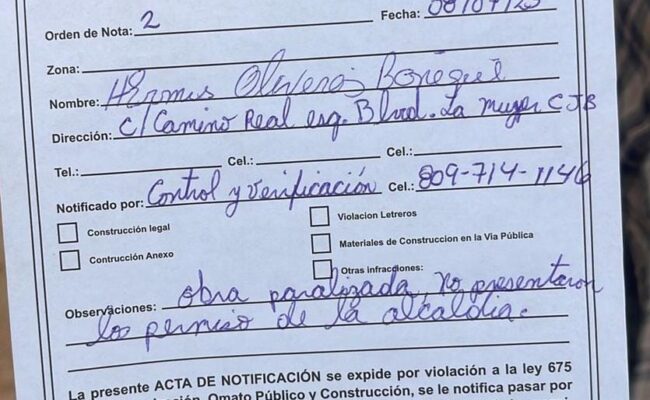 Orden de Nota: 2 Fecha: 08/07/25
Zona:
Nombre: Hermus Oliveros Bonequel
Dirección: C/Camino Real esq. Blvd. La mujer CJB
Tel.: Cel.: Cel.:
Notificado por: Control y Verificación Cel.: 809-714-1146
Construcción legal
Contrucción Anexo
Violacion Letreros
Materiales de Construccion en la Via Pública
Otras infracciones:
Observaciones: obra paralizada, no presentaron
los permiso de la alcaldia.
La presente ACTA DE NOTIFICACIÓN se expide por violación a la ley 675
Omato Público y Construcción, se le notifica pasar por